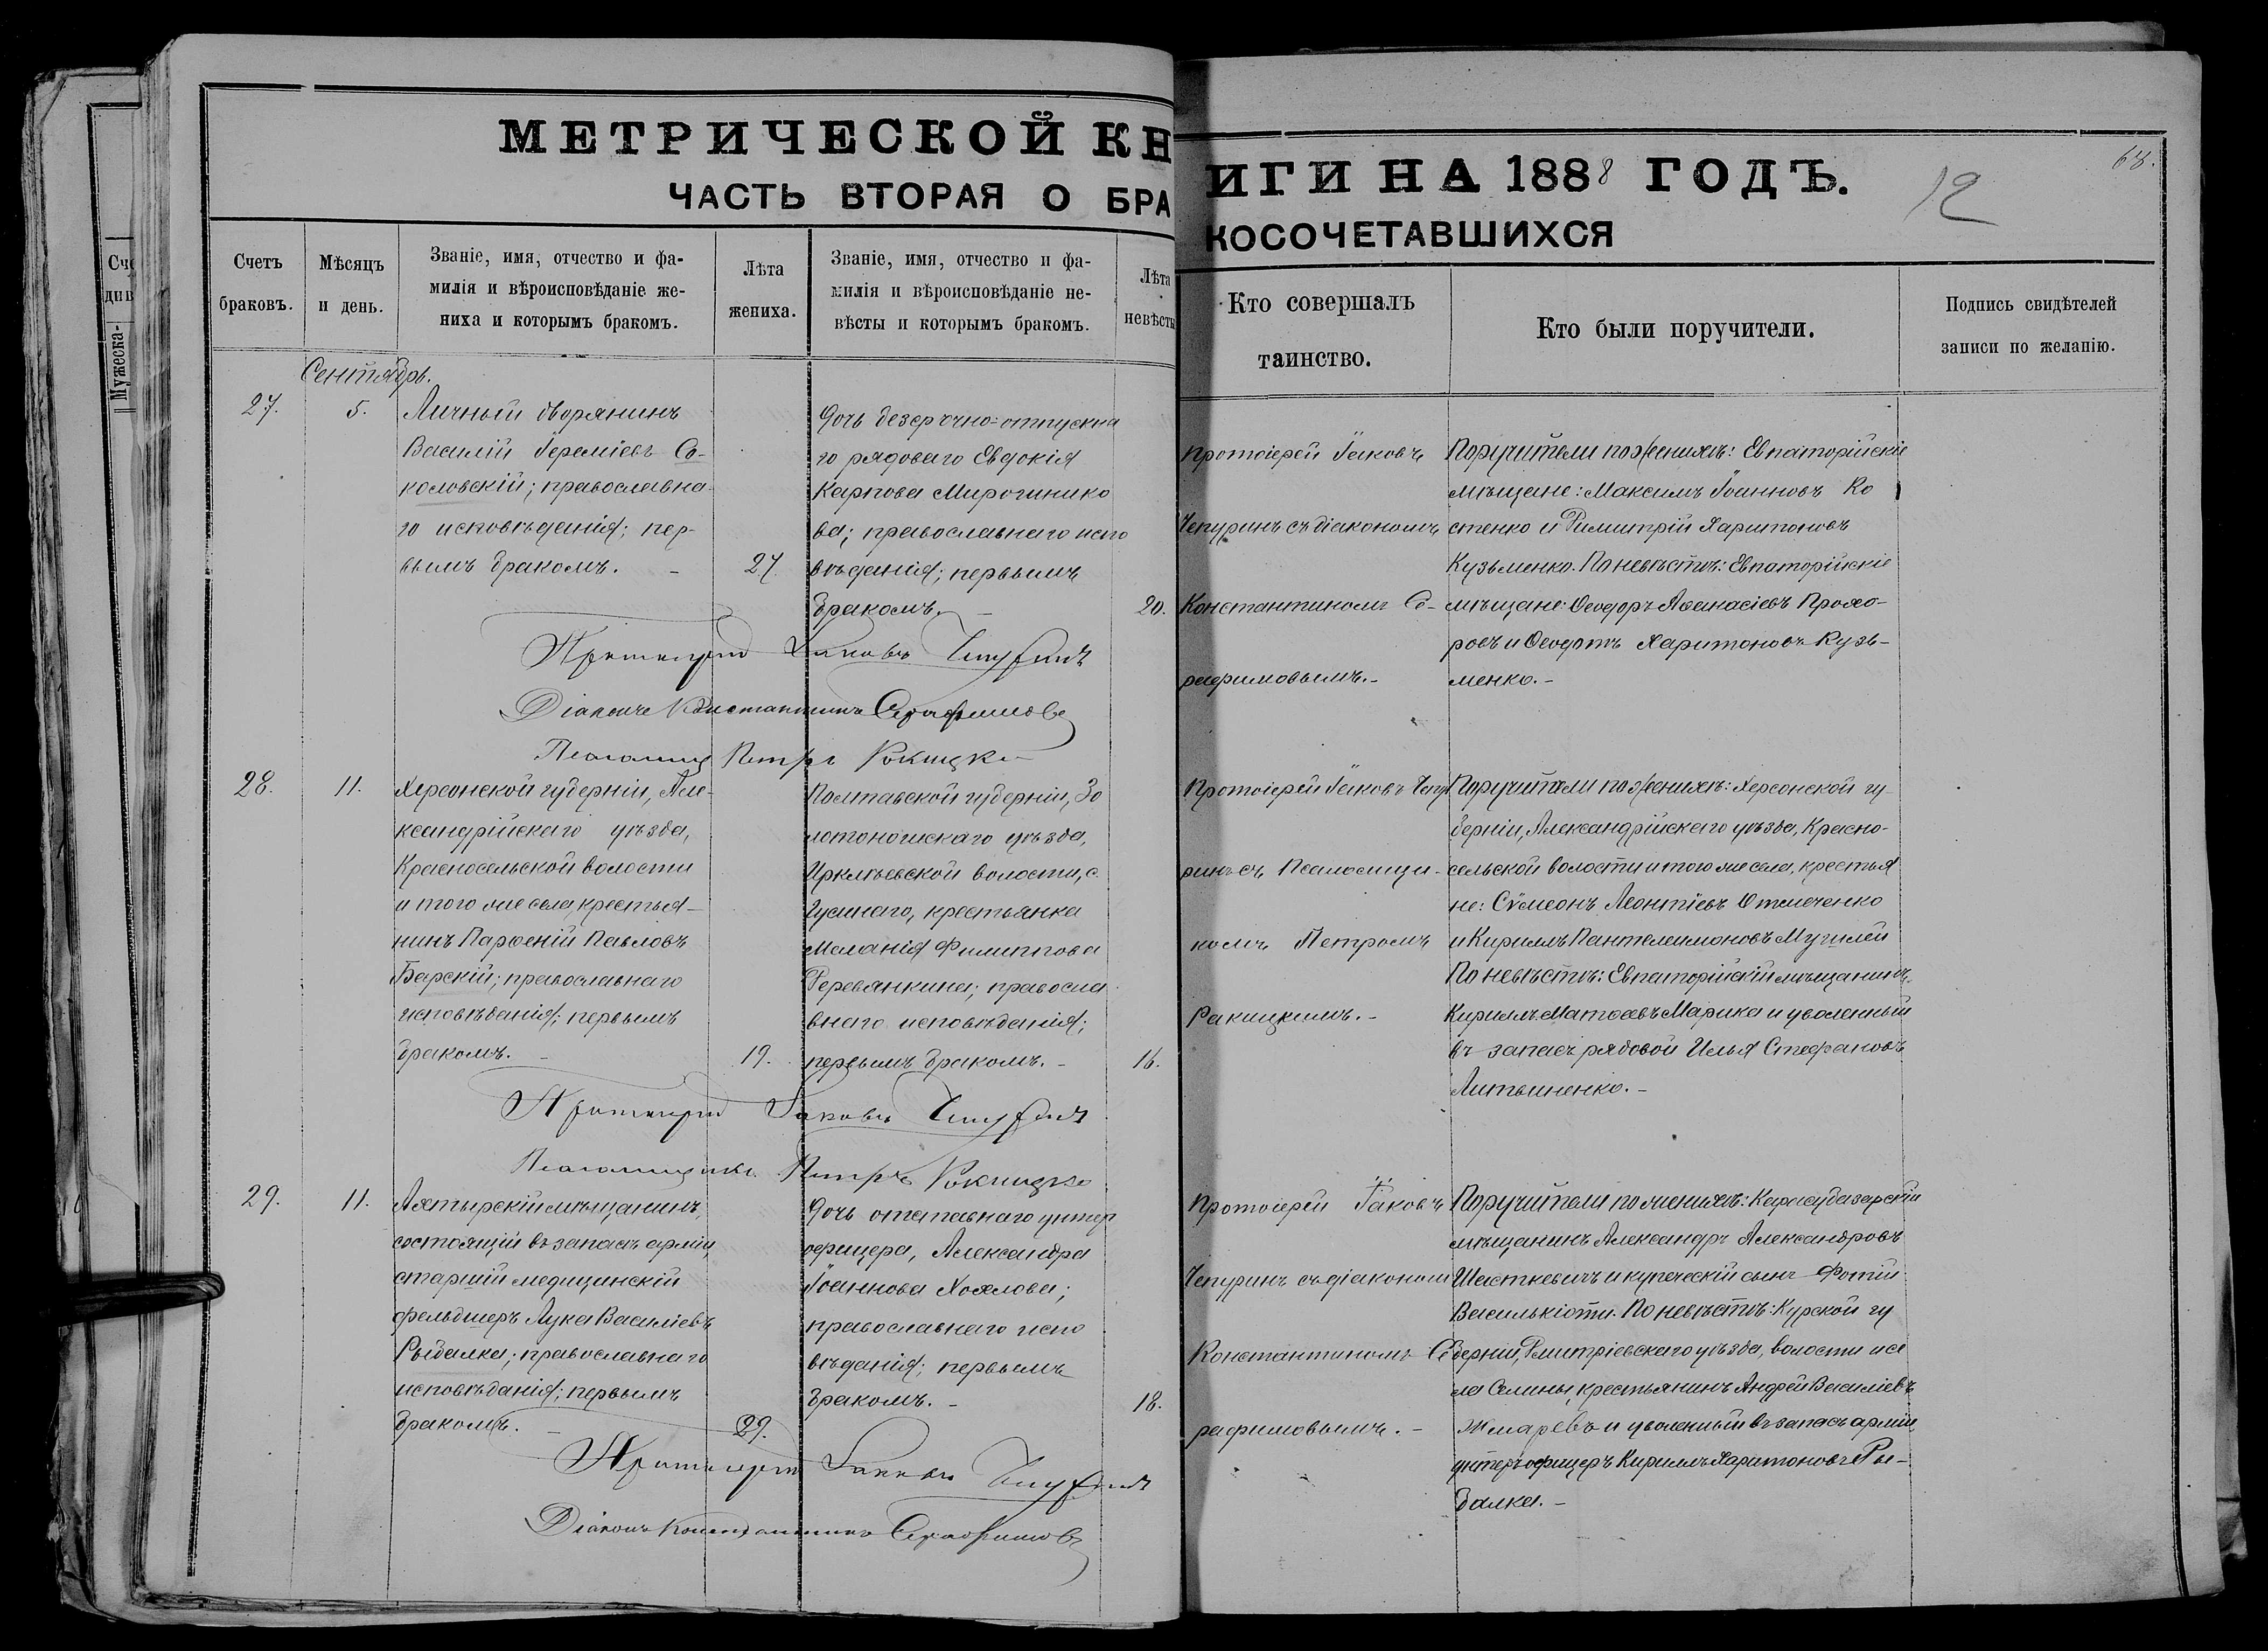 МЕТРИЧЕСКОЙ КНИГИ НА 1888 ГОДЪ.
68.
12
ЧАСТЬ ВТОРАЯ О БРАКОСОЧЕТАВШИХСЯ
Счетъ
браковъ.
Мѣсяцъ
и день.
Званіе, имя, отчество и фа-
милія и вѣроисповѣданіе же-
ниха и которымъ бракомъ.
Лѣта
жениха.
Званіе, имя, отчество и фа-
милія и вѣроисповѣданіе не-
вѣсты и которымъ бракомъ.
Лѣта
невѣсты
Кто совершалъ
таинство.
Кто были поручители.
Подпись свидѣтелей
записи по желанію.
Сентябрь.
27.
5.
Личный дворянинъ
Василій Іереміевъ Со-
коловскій; православна-
го исповѣданія; пер-
вымъ бракомъ. -
27.
Дочь безсрочно-отпускна
го рядоваго Евдокія
Карпова Мирошнико
ва; православнаго испо
вѣданія; первымъ
бракомъ. -
20.
Протоіерей Іаковъ
Чепуринъ съ діакономъ
Константиномъ Се-
рафимовымъ. -
Поручители по женихѣ: Евпаторійскіе
мѣщане: Максимъ Іоанновъ Ко
стенко и Димитрій Харитоновъ
Кузьменко. По невѣстѣ: Евпаторійскіе
мѣщане: Ѳеодоръ Аѳанасіевъ Прохо-
ровъ и Ѳеодотъ Харитоновъ Кузь-
менко. -
Протоіерей Іаковъ Чепуринъ
Діаконъ Константинъ Серафимовъ
Псаломщ Петръ Рокицкі
28.
11.
Херсонской губерніи, Але-
ксандрійскаго уѣзда,
Красносельской волости
и того же села, крестья-
нинъ Парѳеній Павловъ
Барскій; православнаго
исповѣданія; первымъ
бракомъ. -
19.
Полтавской губерніи, Зо
лотоношскаго уѣзда,
Ирклѣевской волости, с.
Гусинаго, крестьянка
Меланія Филиппова
Деревянкина; правосла
внаго исповѣданія;
первымъ бракомъ. -
16.
Протоіерей Іаковъ Чепу
ринъ съ Псаломщи-
комъ Петромъ
Ракицкимъ. -
Поручители по женихѣ: Херсонской гу
берніи, Александрійскаго уѣзда, Красно-
сельской волости и того же села, крестья
не: Сѵмеонъ Леонтіевъ
и Кириллъ Пантелеимоновъ
По невѣстѣ: Евпаторійскій мѣщанинъ
Кириллъ Матѳеевъ Марика и уволенный
въ запасъ рядовой Илья Стефановъ
Литвиненко. -
Протоіерей Іаковъ Чепуринъ
Псаломщикъ Петръ Рокицкі
29.
11.
Ахтырскій мѣщанинъ,
состоящій въ запасѣ арміи,
старшій медицинскій
фельдшеръ Лука Василіевъ
Рыбалка; православнаго
исповѣданія; первымъ
бракомъ. -
29.
Дочь отставнаго унтер
офицера, Александра
Іоаннова Хохлова;
православнаго испо
вѣданія; первымъ
бракомъ. -
18.
Протоіерей Іаковъ
Чепуринъ съ діаконом
Константиномъ Се
рафимовымъ. -
Поручители по женихѣ: Карасубазарскій
мѣщанинъ Александръ Александровъ
Шасткевичъ и купеческій сынъ Фотій
Василькіоти. По невѣстѣ: Курской гу
берніи, Дмитріевскаго уѣзда, волости и се
ла Селины, крестьянинъ Андрей Василіевъ
Жмаревъ и уволенный въ запасъ арміи,
унтеръ офицеръ Кириллъ Харитоновъ Ры-
балка. -
Протоіерей Іаковъ Чепуринъ
Діаконъ Константинъ Серафимовъ